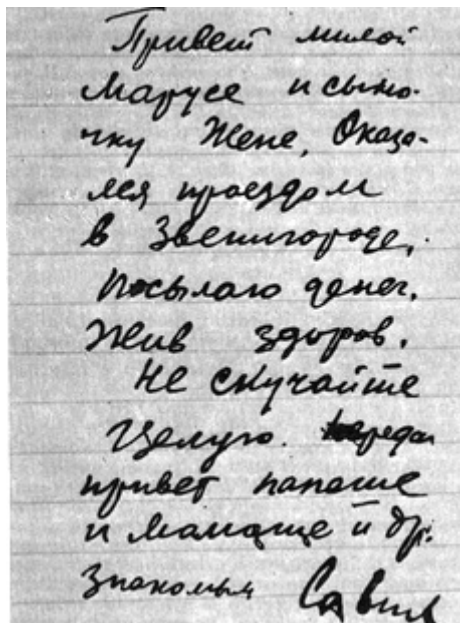 Привет милой
Марусе и сыно-
чку Жене. Оказа-
лся проездом
в Звенигороде,
посылаю денег.
Жив здоров.
Не скучайте
Целую. Передай
привет папаше
и мамаше и др.
знакомым Савин